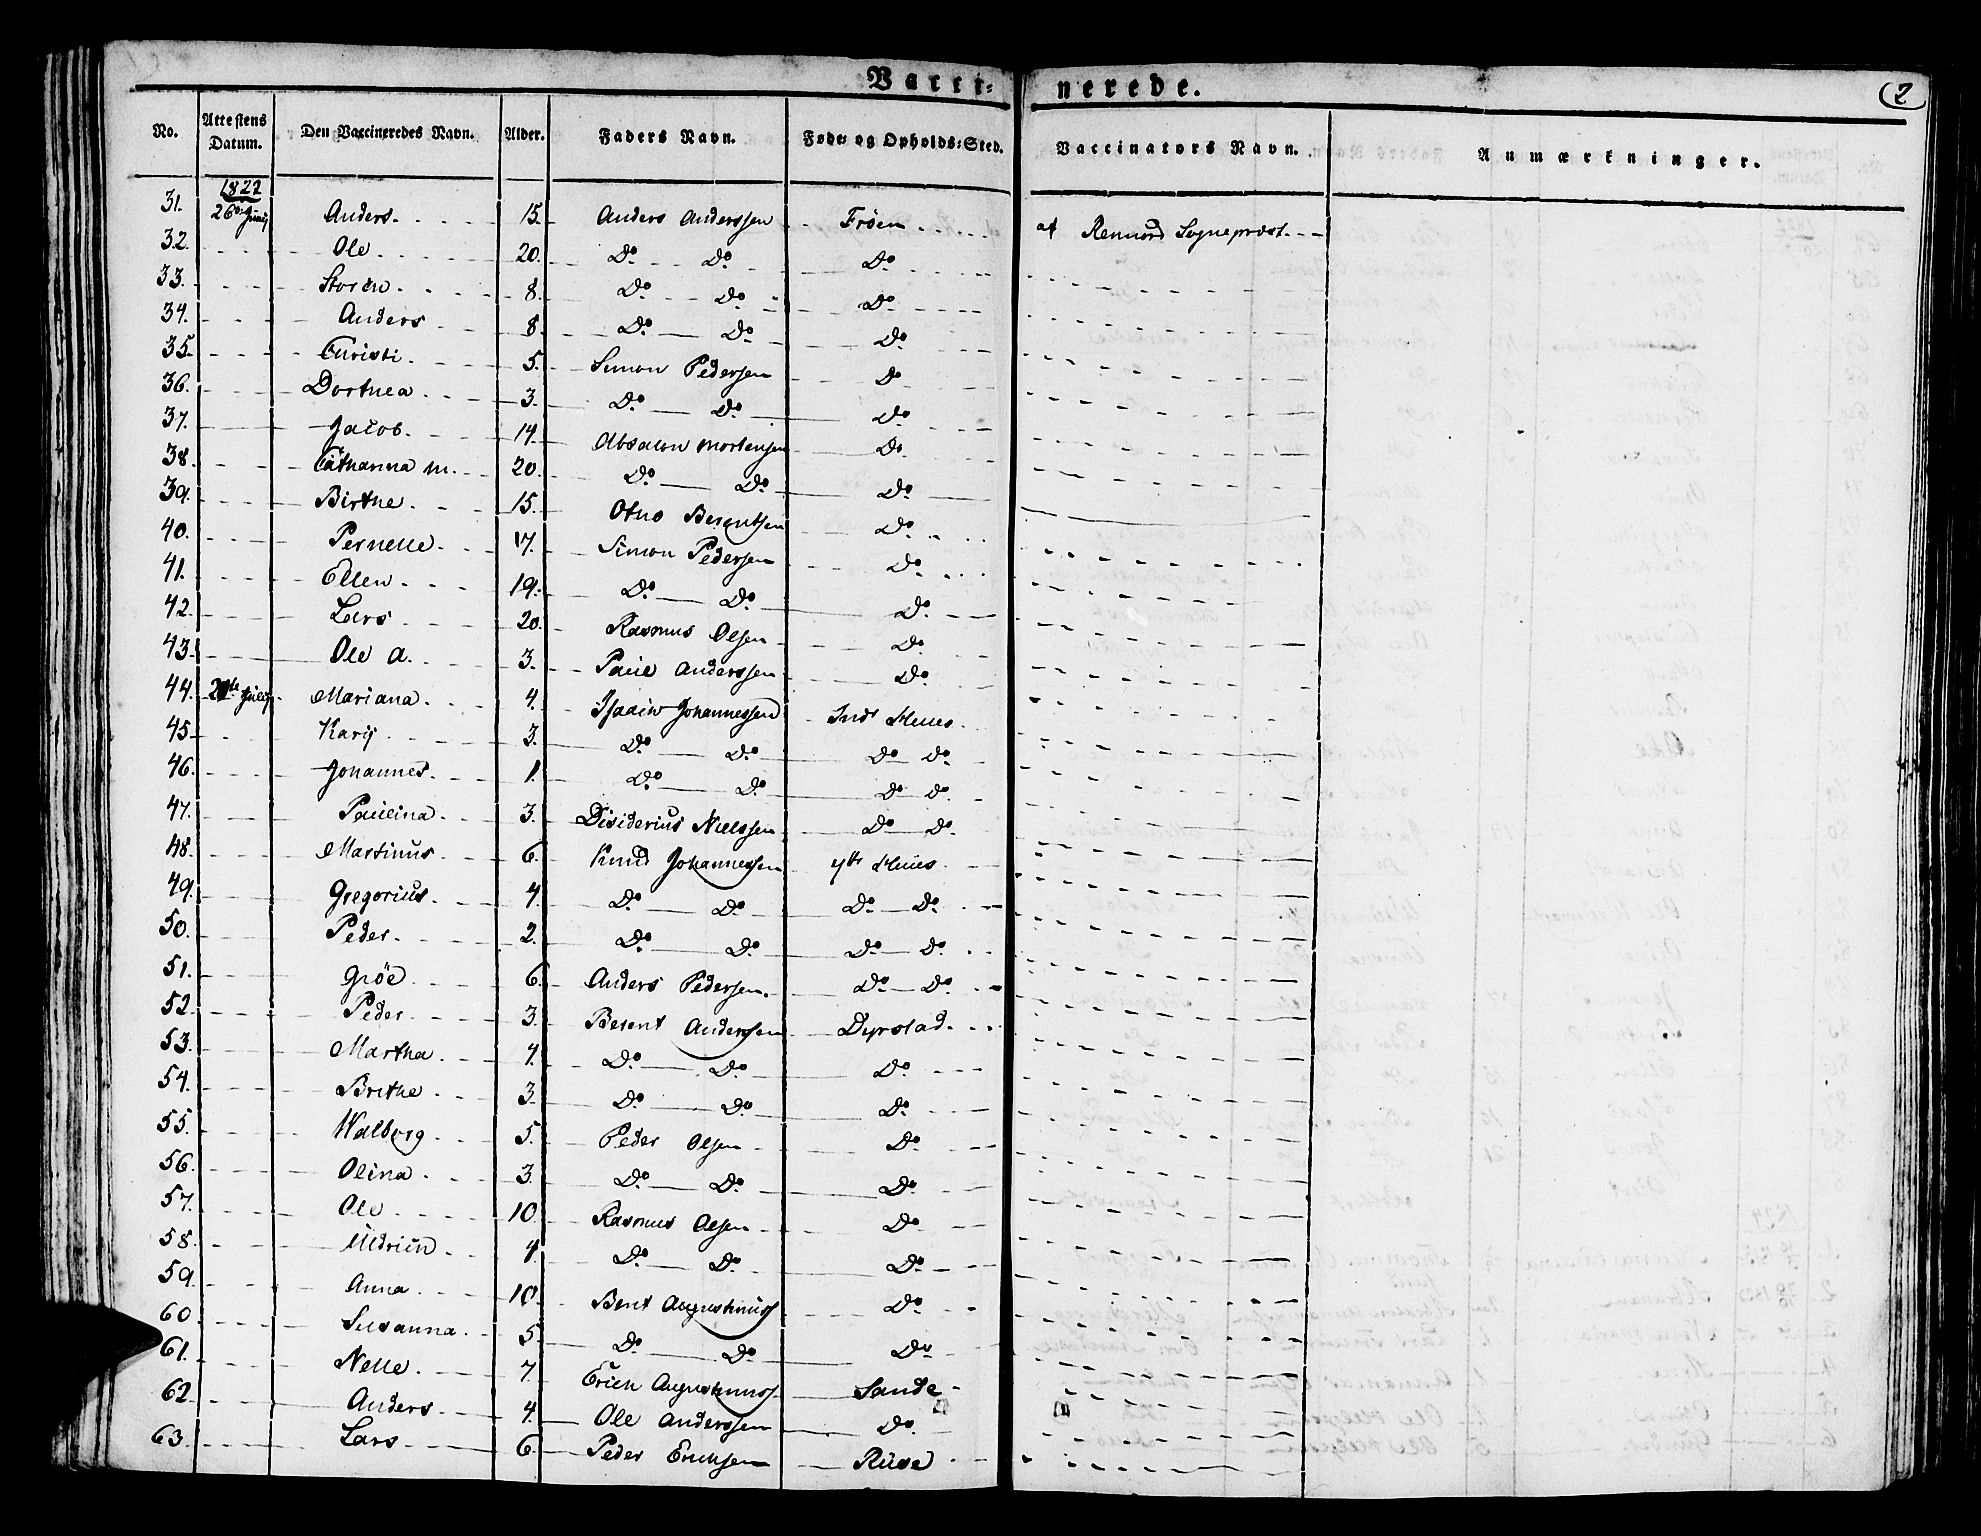 Vacci= nerede. (2
No. Attestens Datum. Den Vaccineredes Navn. Alder. Faders Navn. Føde og Opholds=Sted. Vaccinators Navn. Anmærkninger.
1822
31. 26de Junij Anders. 15. Anders Anderssen Frøen af Rennord Sogneprest.
32. Ole 20. Do Do Do
33. 8. Do Do Do
34. Anders 8. Do Do Do
35. Christi. 5. Simon Pedersen Do
36. Dorthea 3. Do Do Do
37. Jacob. 14. Absalon Mortensen Do
38. Cathanna M. 20. Do Do Do
39. Birthe 15. Otho Berentsen Do
40. Pernelle. 17. Simon Pedersen Do
41. Ellen 19. Do Do Do
42. Lars 20. Rasmus Olsen Do
43. Ole A. 3. Paul Anderssen Do
44. Julij Mariana. 4. Johannessen Indr Huus
45. Karij 3. Do Do Do Do
46. Johannes. 1. Do Do Do Do
47. Paulina. 3. Disiderius Nielssen Do Do
48. Martinus 6. Knud Johannessen Ytr Huus
49. Gregorius. 4. Do Do Do Do
50. Peder. 2. Do Do Do Do
51. Grøe 6. Anders Pedersen. Do Do
52. Peder 3. Berent Anderssen Dyrstad
53. Martha 4. Do Do Do
54. Brithe 3. Do Do Do
55. Walborg 5. Peder Olsen Do
56. Olina 3. Do Do Do
57. Ole 10 Rasmus Olsen Do
58. 4. Do Do Do
59. Anna 10. Bent Augustinuss Do
60 Susanna 5. Do Do Do
61. Nelle. 7 Erich Augustinuss Sande
62 Anders 4. Ole Anderssen Do
63. Lars 6. Peder Erichsen Riise